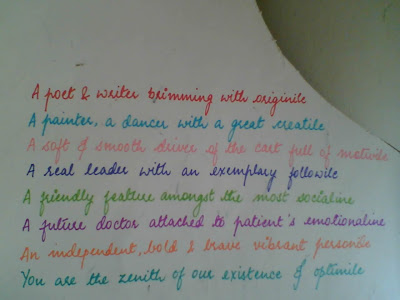 A poet & writer brimming with originile
A painter, a dancer with a great creatile
A soft & smooth driver of the cart full of motivile
A real leader with an exemplary followile
A friendly feature amongst the most socialine
A future doctor attached to patient's emotionaline
An independent, bold & brave vibrant personile
You are the zenith of our existence & optimile